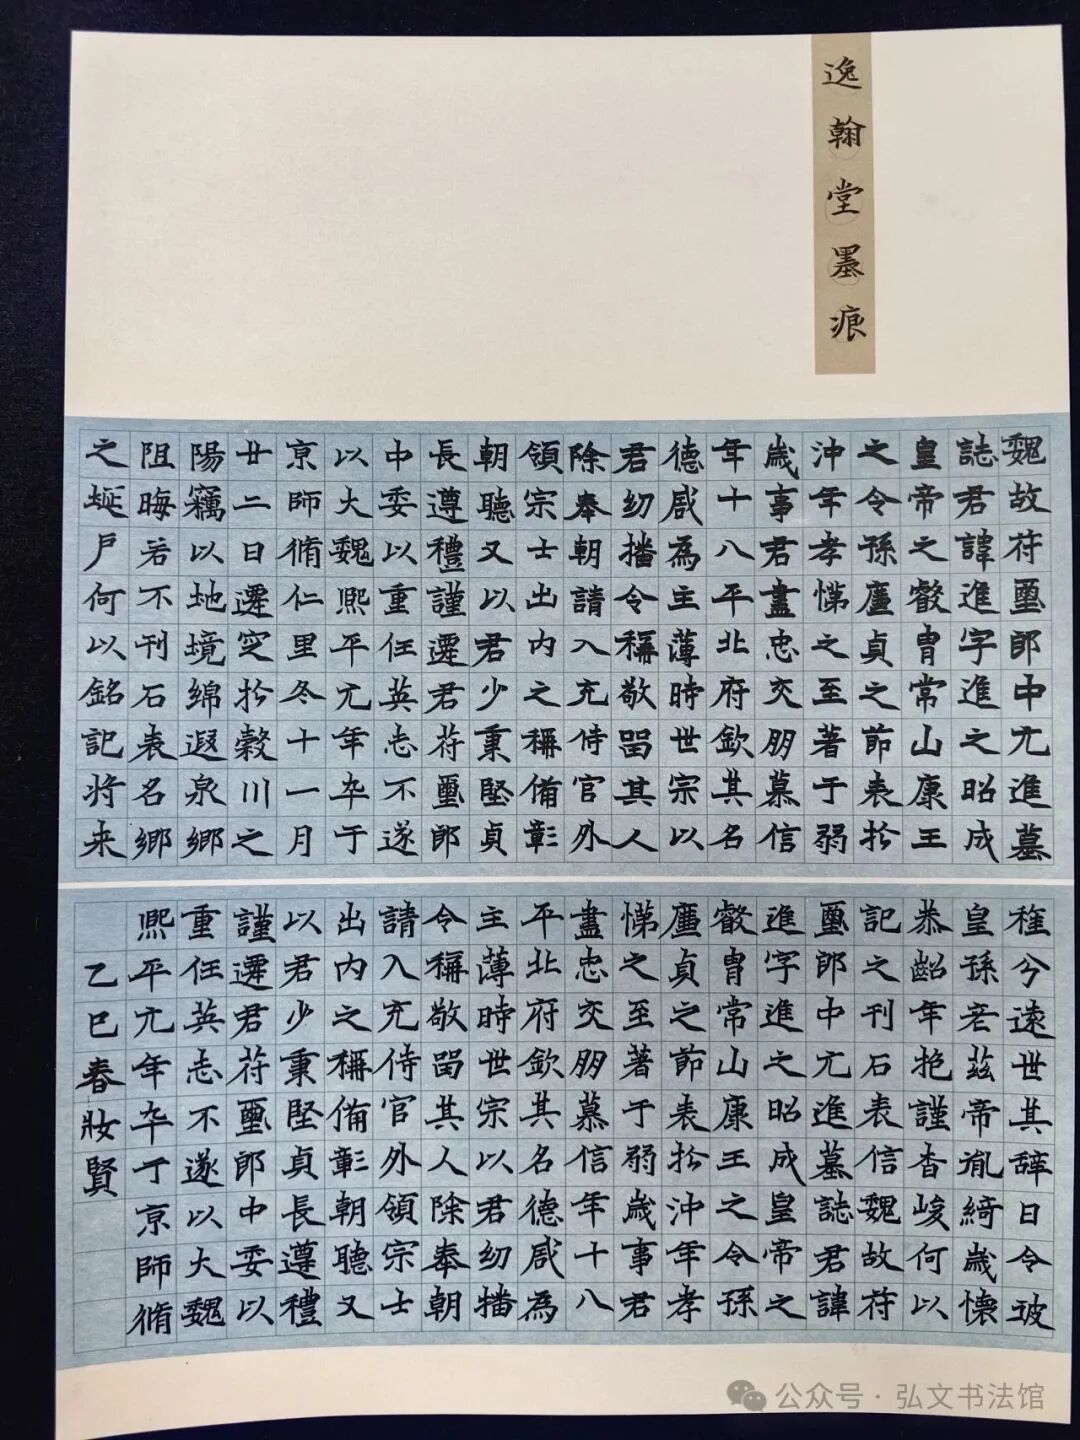 逸翰堂墨痕
魏故苻璽郎中元進墓
誌君諱進字進之昭成
皇帝之叡胄常山康王
之令孫廬貞之節表於
沖年孝悌之至著于弱
歲事君盡忠交朋慕信
年十八平北府欽其名
德咸為主薄時世宗以
君幼播令稱敬留其人
除奉朝請入充侍官外
領宗士出内之稱備彰
朝聽又以君少秉堅貞
長遵禮謹遷君苻璽郎
中委以重任英志不遂
以大魏熙平元年卒于
京師脩仁里冬十一月
廿二日遷窆於穀川之
陽竊以地境綿遐泉鄉
阻晦若不刊石表名鄉
之蜒尸何以銘記将来
稚兮遠世其辞日令玻
皇孫芒茲帝胤綺歲懷
恭齠年抱謹杳峻何以
記之刊石表信魏故苻
璽郎中元進墓誌君諱
進字進之昭成皇帝之
叡胄常山康王之令孫
廬貞之節表於沖年孝
悌之至著于弱歲事君
盡忠交朋慕信年十八
平北府欽其名德咸為
主薄時世宗以君幼播
令稱敬留其人除奉朝
請入充侍官外領宗士
出内之稱備彰朝聽又
以君少秉堅貞長遵禮
謹遷君苻璽郎中委以
重任英志不遂以大魏
熙平元年卒丁京師脩
乙巳春妝賢
公众号·弘文书法馆